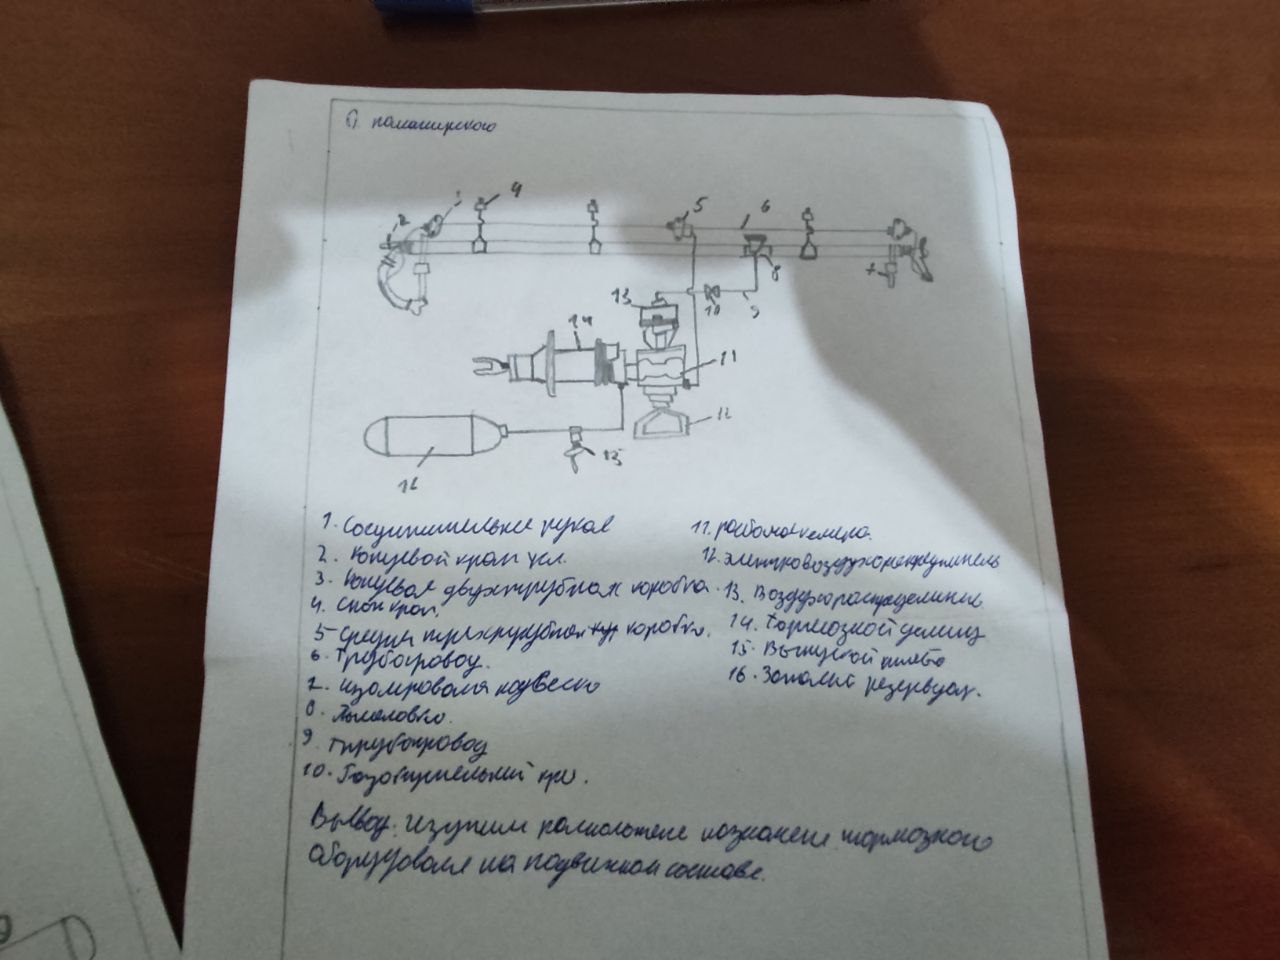 2 3 4 5 6
7 8
13 10 9
14 11
12
15
16
1. Соединительные рукав
2. Концевой кран усл.
3. Концевая двухтрубная коробка.
4. Стоп кран.
5 Средняя трехтрубная коробка.
6. Трубопровод.
7. изолирована подвеска
8.
9. трубопровод
10. Разобщительный кра.
11. рабочая камера.
12. электровоздухораспределитель
13. Воздухораспределитель
14. Тормозной цилинд
15. Выпускной клапа
16. Запасны резервуар.
Вывод: изучили назначене тормозного
оборудования на подвижном составе.